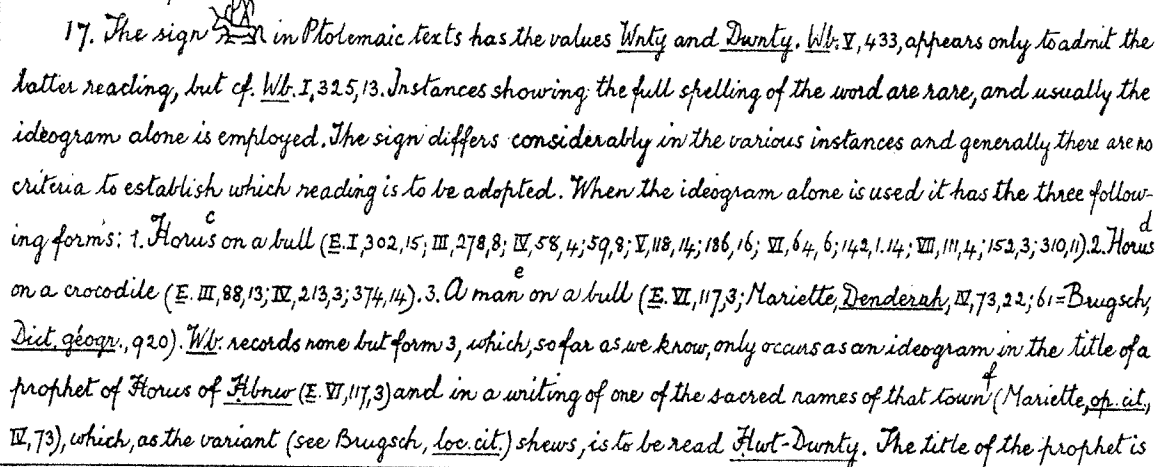 17. The sign in Ptolemaic texts has the values Wnty and Dwnty. Wb. V, 433, appears only to admit the
latter reading, but cf. Wb. I, 325, 13. Instances showing the full spelling of the word are rare, and usually the
ideogram alone is employed. The sign differs considerably in the various instances and generally there are no
criteria to establish which reading is to be adopted. When the ideogram alone is used it has the three follow-
ing forms: 1. Horus c on a bull (E. I, 302, 15; III, 278, 8; IV, 58, 4; 59, 8; V, 118, 14; 186, 16; VI, 64, 6; 142, 1. 14; VII, 111, 4; 152, 3; 310, 11). 2. Horus d
on a crocodile (E. III, 88, 13; IV, 213, 3; 374, 14). 3. A man e on a bull (E. VI, 117, 3; Mariette, Denderah, IV, 73, 22; 61 = Brugsch,
Dict. géogr., 920). Wb. records none but form 3, which, so far as we know, only occurs as an ideogram in the title of a
prophet of Horus of Ḥbnw (E. VI, 117, 3) and in a writing of one of the sacred names of that town f (Mariette, op. cit.,
IV, 73), which, as the variant (see Brugsch, loc. cit.) shews, is to be read Ḥwt-Dwnty. The title of the prophet is